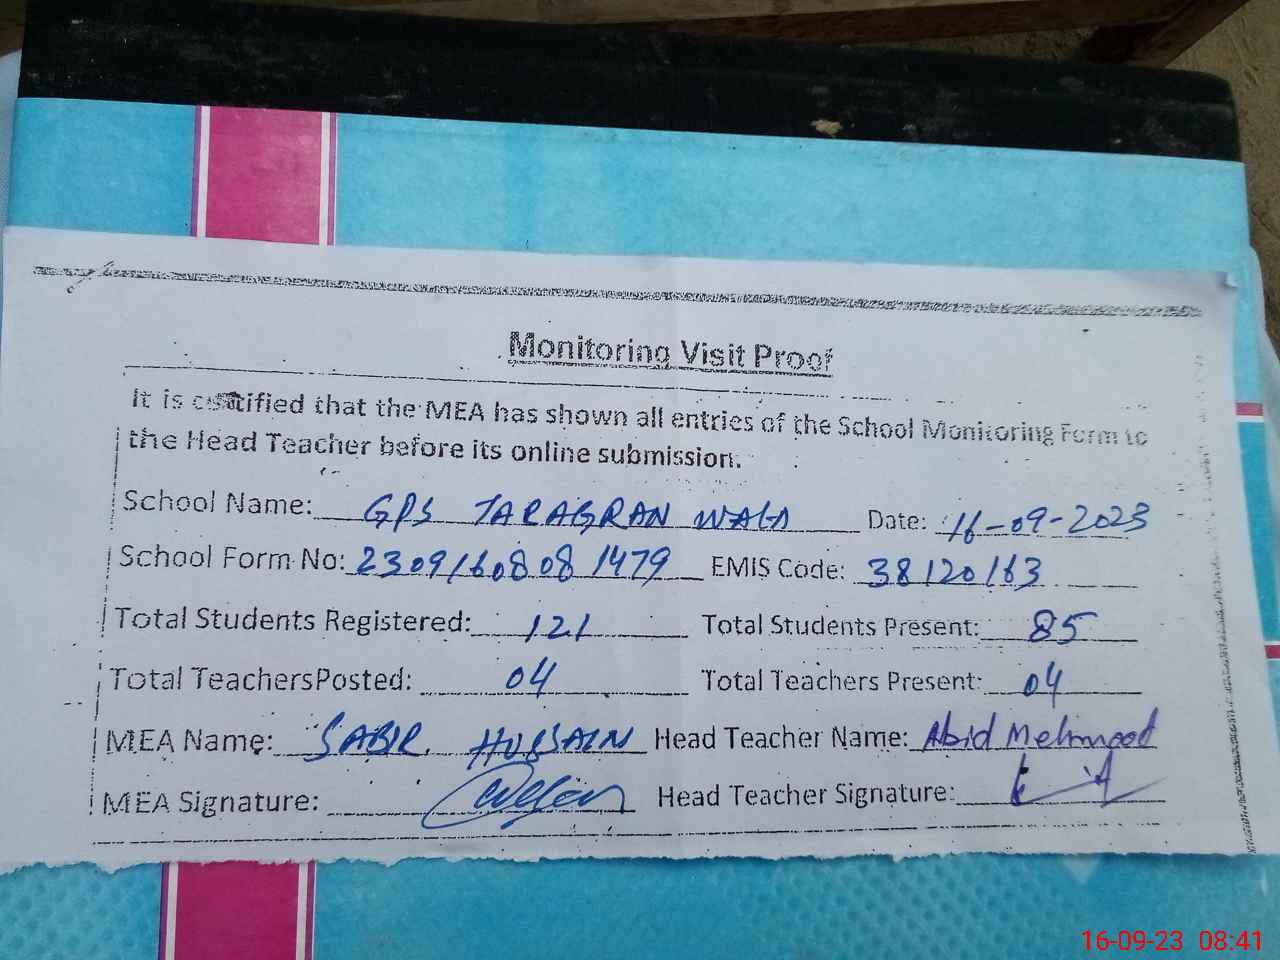 Monitoring Visit Proof
It is certified that the MEA has shown all entries of the School Monitoring Form to
the Head Teacher before its online submission.
School Name: GPS TARAGRAN WALA Date: 16-09-2023
School Form No: 2309160808 1479 EMIS Code: 38120163
Total Students Registered: 121 Total Students Present: 85
Total TeachersPosted: 04 Total Teachers Present: 04
MEA Name: SABIR HUSSAIN Head Teacher Name: Abid Mehmood
MEA Signature: Head Teacher Signature:
16-09-23 08:41